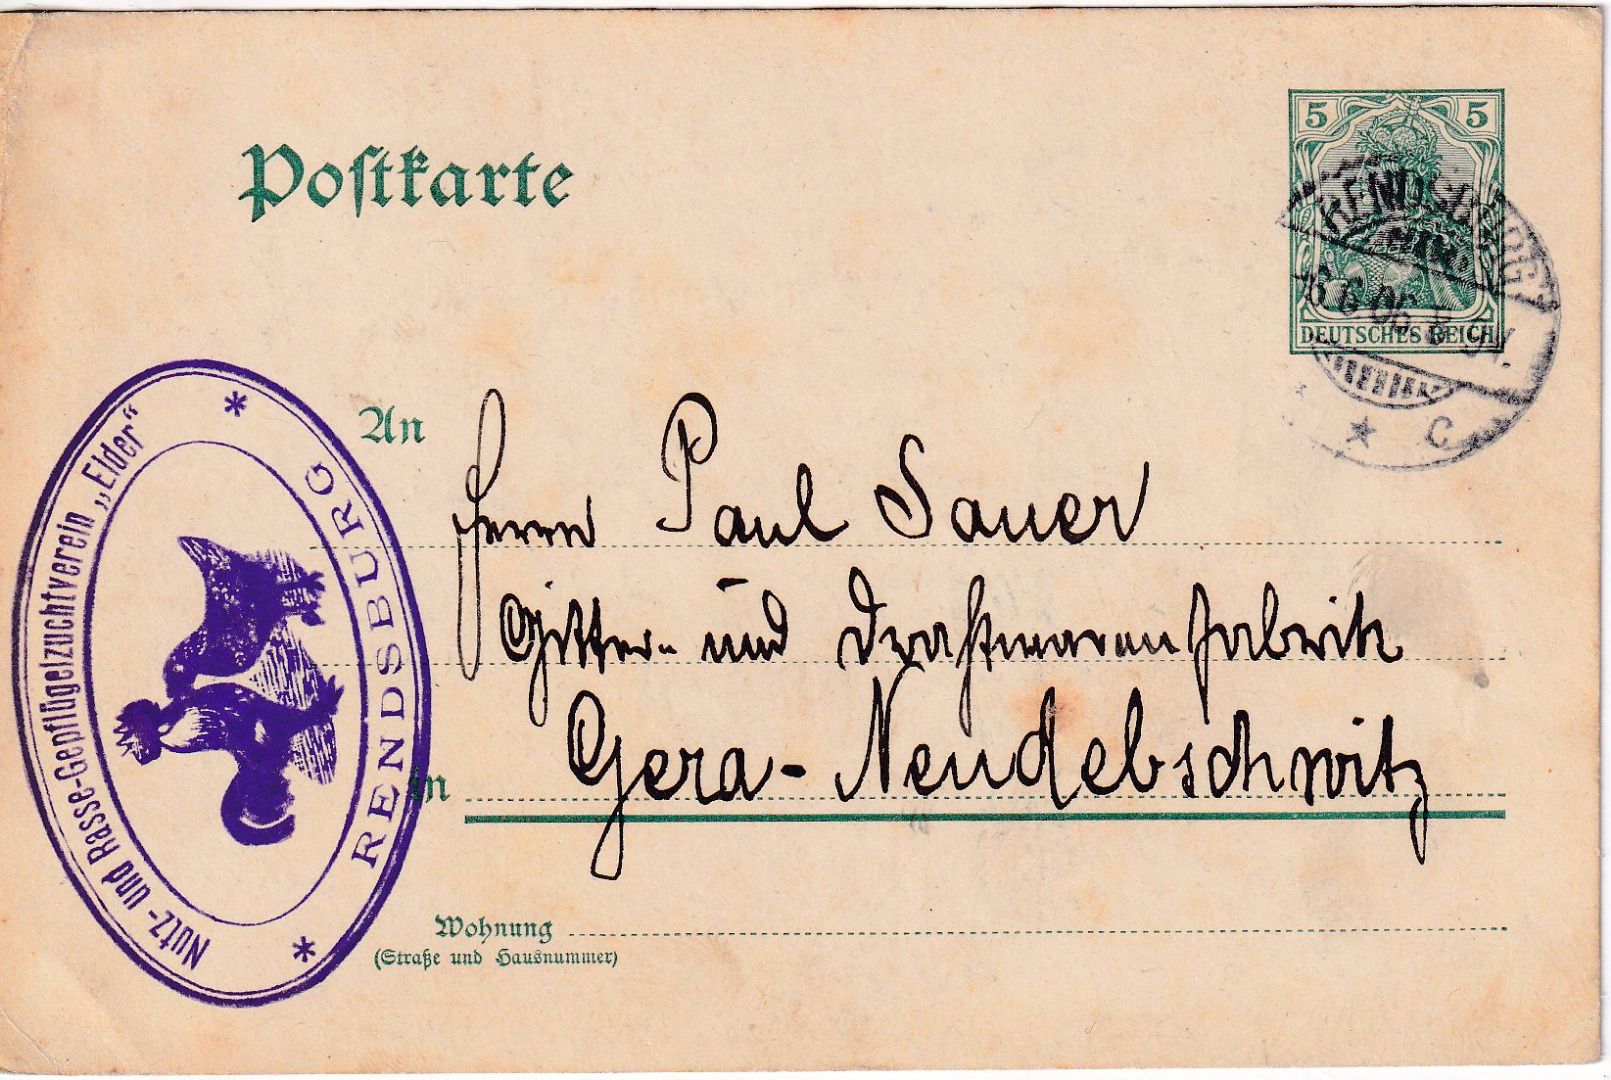 Postkarte
5 5
DEUTSCHES REICH
RENDSBURG
6.06.8-9V.
★ C
Nutz- und Rasse-Geflügelzuchtverein „Elder“
* RENDSBURG *
An
Herrn Paul Sauer
Gitter- und Drahtwarenfabrik
in Gera-Neudebschwitz
Wohnung
(Straße und Hausnummer)